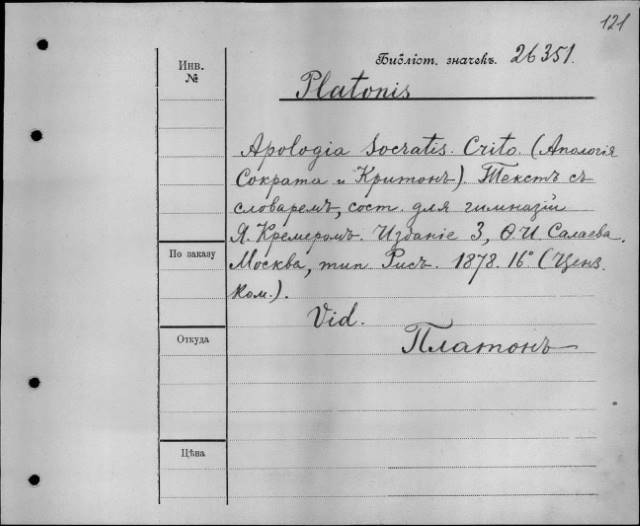 121
Библіот. значекъ. 26351.
Инв. №
Platonis
Apologia Socratis. Crito. (Апологія
Сократа и Критонъ). Текстъ съ
словаремъ, сост. для гимназій
Я. Кремеромъ. Изданіе 3, Ѳ. И. Салаева.
По заказу
Москва, тип. Рисъ. 1878. 16° (Ценз.
Ком.).
Vid.
Откуда
Платонъ
Цѣна